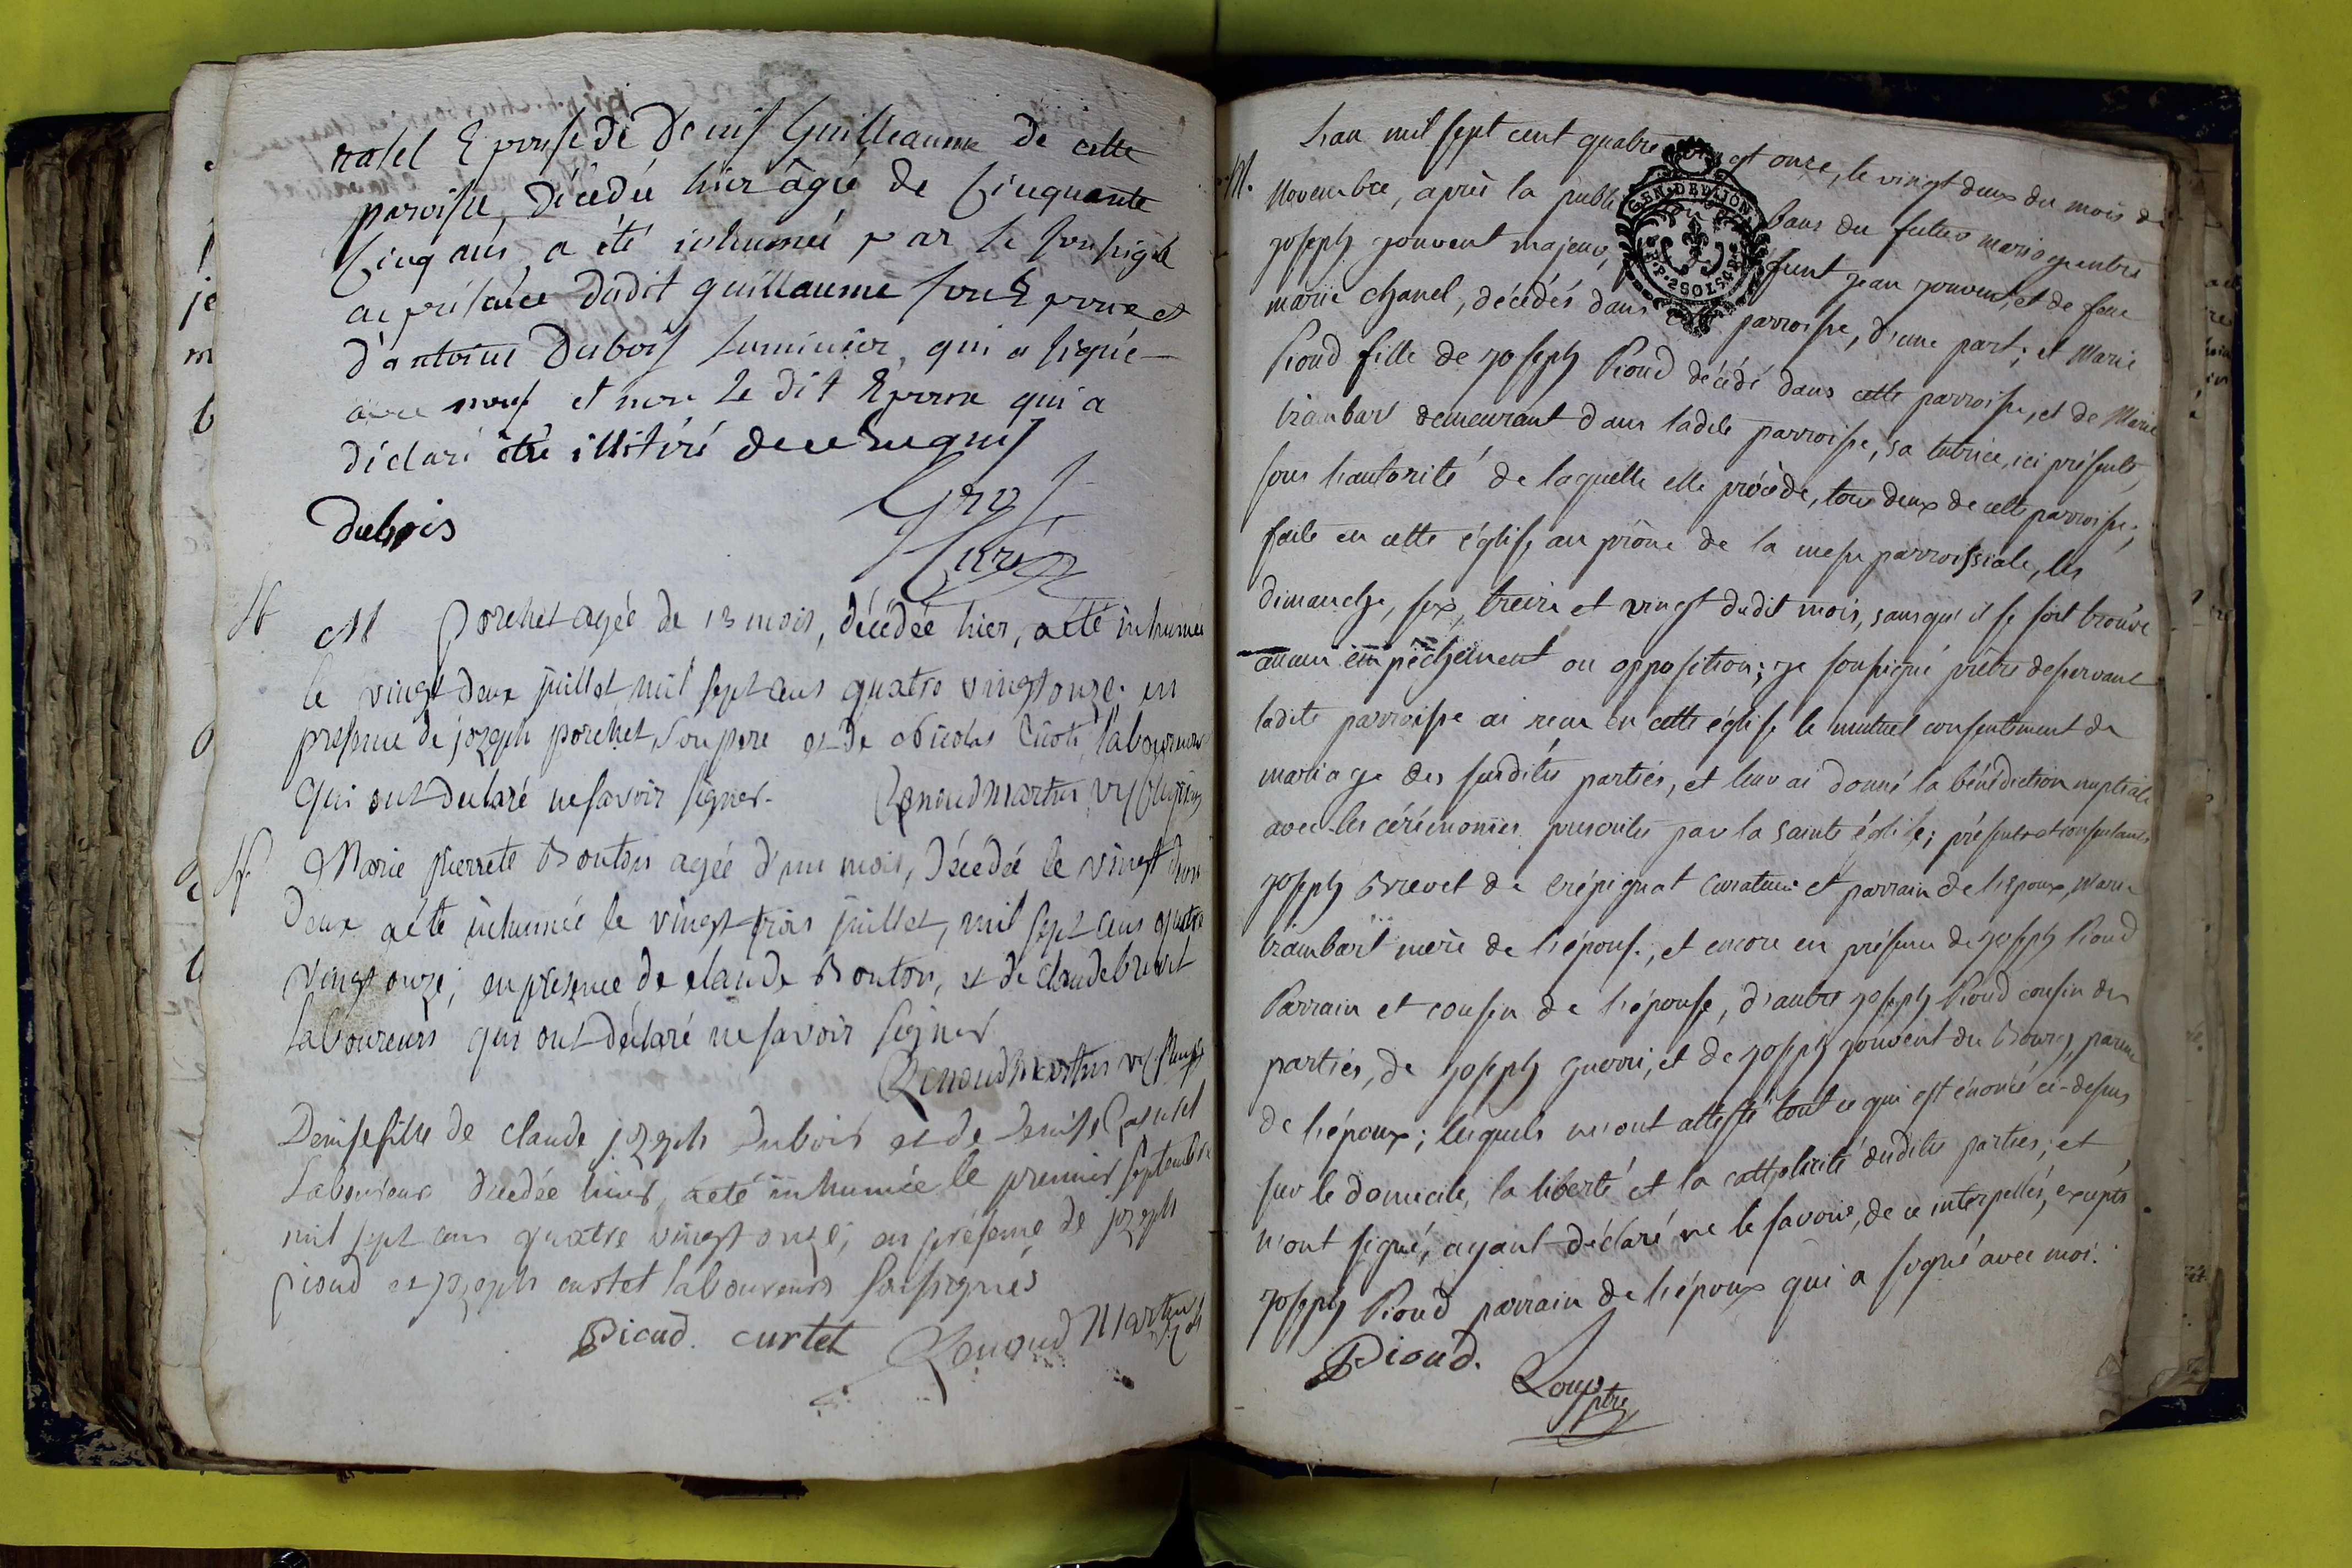 Epouse de Denis Guilleaume de cette
paroisse, décédée hier âgée de Cinquante
Cinq ans, a été inhumée par le soussigné
en présence dudit guillaume son Epoux et
d'antoine Dubois luminier, qui a signé
avec nous et non le dit Epoux qui a
déclaré être illitéré de ce requis
Gros
dubois
Curé
M porchet agée de 13 mois, décédée hier, a été inhumée
le vingt deux juillet mil sept cens quatre vingt onze. en
presence de jozeph porchet, son pere et de Nicolas laboureurs
qui ont declaré ne savoir signer. Renoud Martin
Marie pierrete Bouton agée d'un mois, Décedée le vingt
deux a été inhumée le vingt trois juillet, mil sept cens quatre
vingt onze; en presence de claude Bouton, et de claude brevet
laboureurs qui ont déclaré ne savoir signer
Renoud Martin
Denise fille de claude jozeph Dubois et de Denise
Laboureur décedée hier, a été inhumée le premier septembre
mil sept cens quatre vingt onze, en présence de jozeph
pioud et jozeph curtet laboureurs soussignés
Pioud. curtet Renoud Martin
L'an mil sept cent quatre vingt onze, le vingt deux du mois de
M.
Novembre, après la publi bans du futur mariage entre
joseph jouvent majeur, funt jean jouvent, et de feue
marie chanel, décédés dans cette parroisse, d'une part; et Marie
Pioud fille de joseph Pioud décédé dans cette parroisse, et de Marie
trambart demeurant dans ladite parroisse, sa tutrice, ici présente,
sous l'autorité de laquelle elle procède, tous deux de cette parroisse;
faite en cette église au prône de la messe parroissiale, les
dimanche, six, treize et vingt dudit mois, sans qu'il se soit trouvé
aucun empêchement ou opposition; je soussigné prêtre desservant
ladite parroisse ai reçu en cette église le mutuel consentement de
mariage des susdites parties, et leur ai donné la bénédiction nuptiale
avec les cérémonies prescrites par la sainte église; présents et consentants
joseph Brevet de crépignat curateur et parrain de l'époux, marie
trambart mère de l'épouse, et encore en présence de joseph Pioud
Parrain et cousin de l'épouse, d'autre joseph Pioud cousin des
parties, de joseph guerri, et de joseph jouvent du Bourg, parent
de l'époux; lesquels m'ont attesté tout ce qui est énoncé ci-dessus
sur le domicile, la liberté et la catholicité desdites parties; et
n'ont signé, ayant déclaré ne le savoir, de ce interpellés, excepté
joseph Pioud parrain de l'époux qui a signé avec moi.
Pioud.
Loup
ptre
GEN. DE LION
2 SOLS